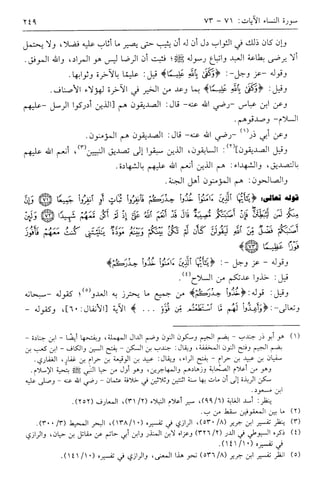 سورة النساء الآيات: ٧١ - ٧٣
٢٤٩
وإن كان ذلك في الثواب دل أن له أن يثيب حتى يصير ما أثاب عليه فضلا، ولا يحتمل
ألا يرضى بطاعة العبد واتباع رسوله ﷺ؛ فثبت أن الرضا ليس هو المراد، والله الموفق.
وقوله - عز وجل -: ﴿وَكَفَىٰ بِٱللَّهِ عَلِيمًا﴾ قيل: عليما بالآخرة وثوابها.
وقيل: ﴿وَكَفَىٰ بِٱللَّهِ عَلِيمًا﴾ بما وعد من الخير في الآخرة لهؤلاء الأصناف.
وعن ابن عباس -رضي الله عنه- قال: الصديقون هم [الذين أدركوا الرسل -عليهم
السلام- وصدقوهم.
وعن أبي ذر(١) -رضي الله عنه- قال: الصديقون هم المؤمنون.
وقيل الصديقون](٢): السابقون، الذين سبقوا إلى تصديق النبيين(٣)، أنعم الله عليهم
بالتصديق، والشهداء: هم الذين أنعم الله عليهم بالشهادة.
والصالحون: هم المؤمنون أهل الجنة.
قوله تعالى: ﴿يَٰٓأَيُّهَا ٱلَّذِينَ ءَامَنُوا۟ خُذُوا۟ حِذْرَكُمْ فَٱنفِرُوا۟ ثُبَاتٍ أَوِ ٱنفِرُوا۟ جَمِيعًا ۝٧١ وَإِنَّ
مِنكُمْ لَمَن لَّيُبَطِّئَنَّ فَإِنْ أَصَٰبَتْكُم مُّصِيبَةٌ قَالَ قَدْ أَنْعَمَ ٱللَّهُ عَلَىَّ إِذْ لَمْ أَكُن مَّعَهُمْ شَهِيدًا ۝٧٢ وَلَئِنْ
أَصَٰبَكُمْ فَضْلٌ مِّنَ ٱللَّهِ لَيَقُولَنَّ كَأَن لَّمْ تَكُنۢ بَيْنَكُمْ وَبَيْنَهُۥ مَوَدَّةٌ يَٰلَيْتَنِى كُنتُ مَعَهُمْ فَأَفُوزَ
فَوْزًا عَظِيمًا ۝٧٣﴾
وقوله - عز وجل -: ﴿يَٰٓأَيُّهَا ٱلَّذِينَ ءَامَنُوا۟ خُذُوا۟ حِذْرَكُمْ﴾
قيل: خذوا عدتكم من السلاح(٤).
وقيل: قوله: ﴿خُذُوا۟ حِذْرَكُمْ﴾ من جميع ما يحترز به العدو(٥)؛ كقوله -سبحانه
وتعالى-: ﴿وَأَعِدُّوا۟ لَهُم مَّا ٱسْتَطَعْتُم مِّن قُوَّةٍ . . . ﴾ الآية [الأنفال: ٦٠]، وكقوله -
(١) هو أبو ذر جندب - بضم الجيم وسكون النون وضم الدال المهملة، وبفتحها أيضًا - ابن جنادة -
بضم الجيم وفتح النون المخففة، ويقال: جندب بن السكن - بفتح السين والكاف - ابن كعب بن
سفيان بن عبيد بن حرام - بفتح الراء، ويقال: عبيد بن الوقيعة بن حرام بن غفار، الغفاري.
وهو من أعلام الصحابة وزهادهم والمهاجرين، وهو أول من حيا النبي ﷺ بتحية الإسلام.
سكن الربذة إلى أن مات بها سنة اثنتين وثلاثين في خلافة عثمان - رضي الله عنه - وصلى عليه
ابن مسعود.
ينظر: أسد الغابة (٩٩/٦)، سير أعلام النبلاء (٣١/٢)، المعارف (٢٥٢).
(٢) ما بين المعقوفين سقط من ب.
(٣) ينظر تفسير ابن جرير (٥٣٠/٨)، الرازي في تفسيره (١٣٨/١٠)، البحر المحيط (٣٠٠/٣).
(٤) ذكره السيوطي في الدر (٣٢٦/٢) وعزاه لابن المنذر وابن أبي حاتم عن مقاتل بن حيان، والرازي
في تفسيره (١٤١/١٠).
(٥) ينظر تفسير ابن جرير (٥٣٦/٨) نحو هذا المعنى، والرازي في تفسيره (١٤١/١٠).